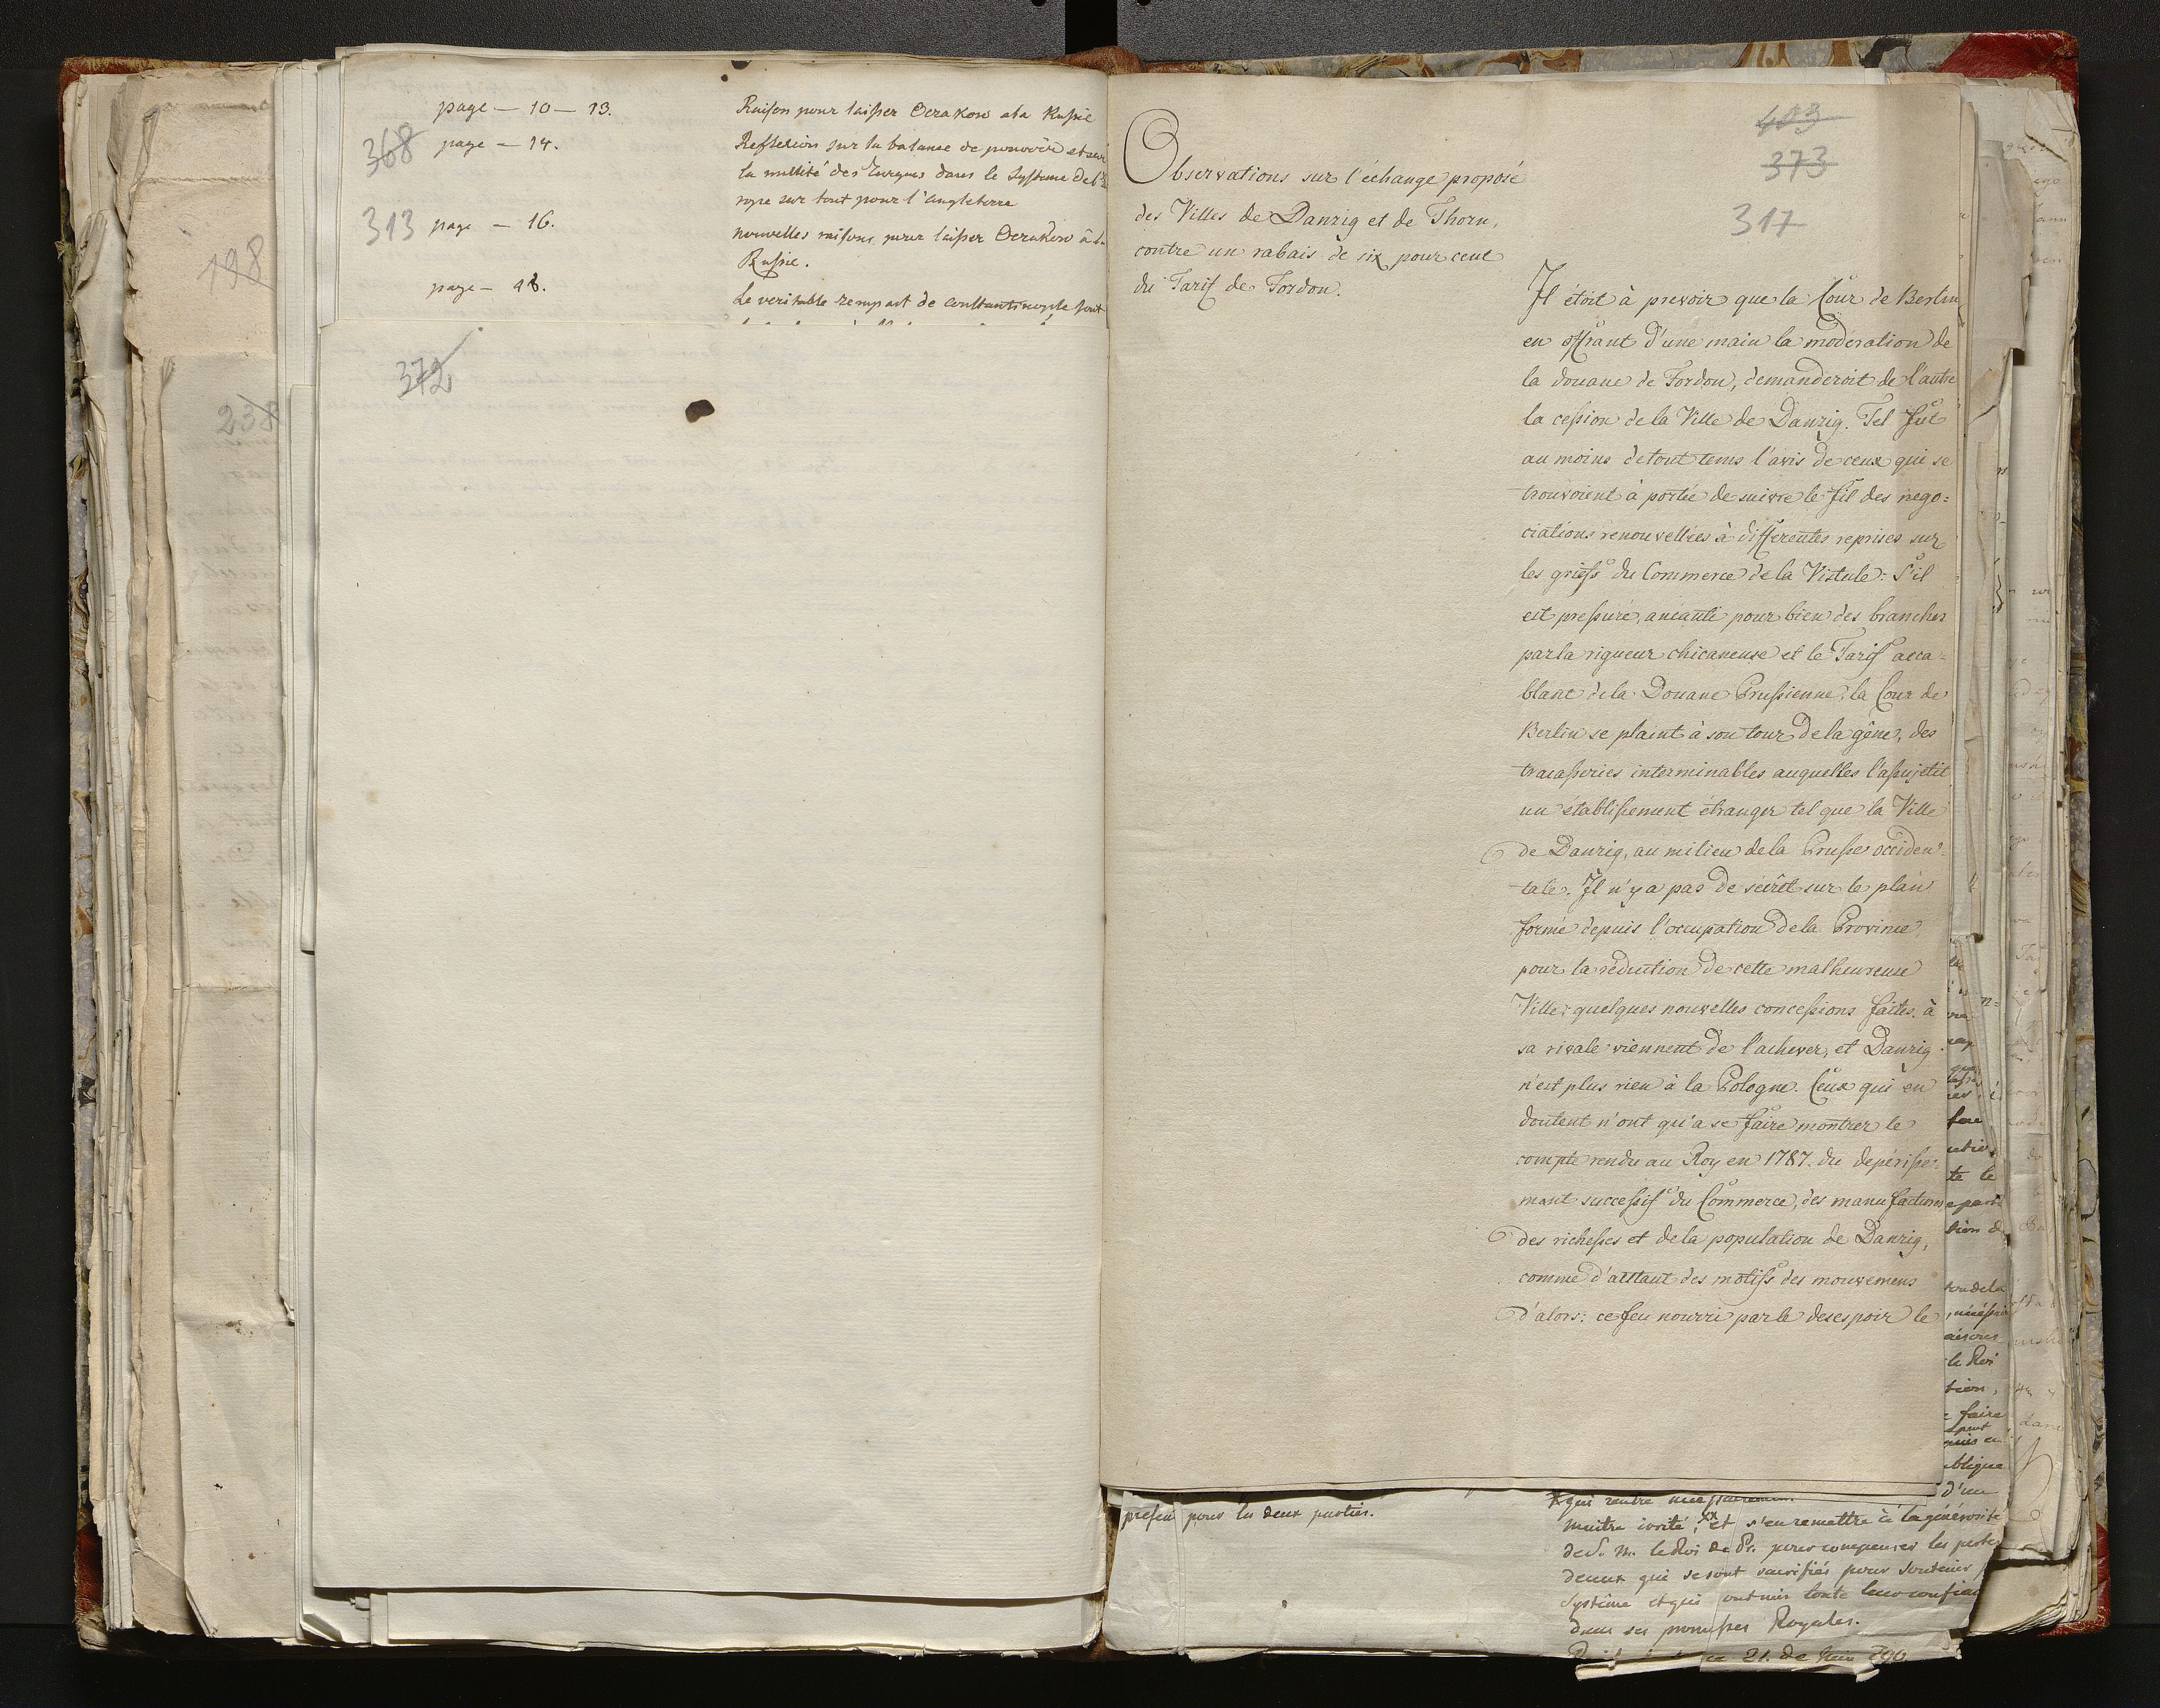 page — 10 — 13. Raison pour laisser Oczakow a la Russie
368
page — 14. Reflexion sur la balance de pouvoir et sur
la nullité des Turques dans le Systeme de l'Eu
rope sur tout pour l'angleterre
313
page — 16. nouvelles raisons pour laisser Oczakow à la
Russie.
page — 18. Le veritable rempart de constantinople sont
198
238
372
403
373
317
Observations sur l'échange proposé
des Villes de Danzig et de Thorn,
contre un rabais de six pour cent
du Tarif de Fordon.
Il étoit à prevoir que la Cour de Berlin
en offrant d'une main la modération de
la douane de Fordon, demanderoit de l'autre
la cession de la Ville de Danzig. Tel fut
au moins de tout tems l'avis de ceux qui se
trouvoient à portée de suivre le fil des nego=
ciations renouvellées à differentes reprises sur
les griefs du Commerce de la Vistule: S'il
est pressuré, aneanti pour bien des branches
par la rigueur chicaneuse et le Tarif acca=
blant de la Douane Prussienne, la Cour de
Berlin se plaint à son tour de la gêne, des
tracasseries interminables auquelles l'assujetit
un établissement étranger tel que la Ville
de Danzig, au milieu de la Prusse occiden=
tale. Il n'y a pas de secrêt sur le plan
formé depuis l'occupation de la Province
pour la réduction de cette malheureuse
Ville; quelques nouvelles concessions faites à
sa rivale viennent de l'achever, et Danzig
n'est plus rien à la Pologne. Ceux qui en
doutent n'ont qu'a se faire montrer le
compte rendu au Roy en 1787. du depérisse=
mant successif du Commerce, des manufactures
des richesses et de la population de Danzig,
comme d'autant des motifs des mouvemens
d'alors: ce feu nourri par le desespoir le
pour les deux parties.
qui rentre
et s'en remettre à la générosité
de S. M. le Roi de Pr. pour compenser les pertes
deceux qui se sont sacrifiés pour soutenir
Système et qui ont mis toute leur confian
dans ses promesses Royales.
21. de Juin 790